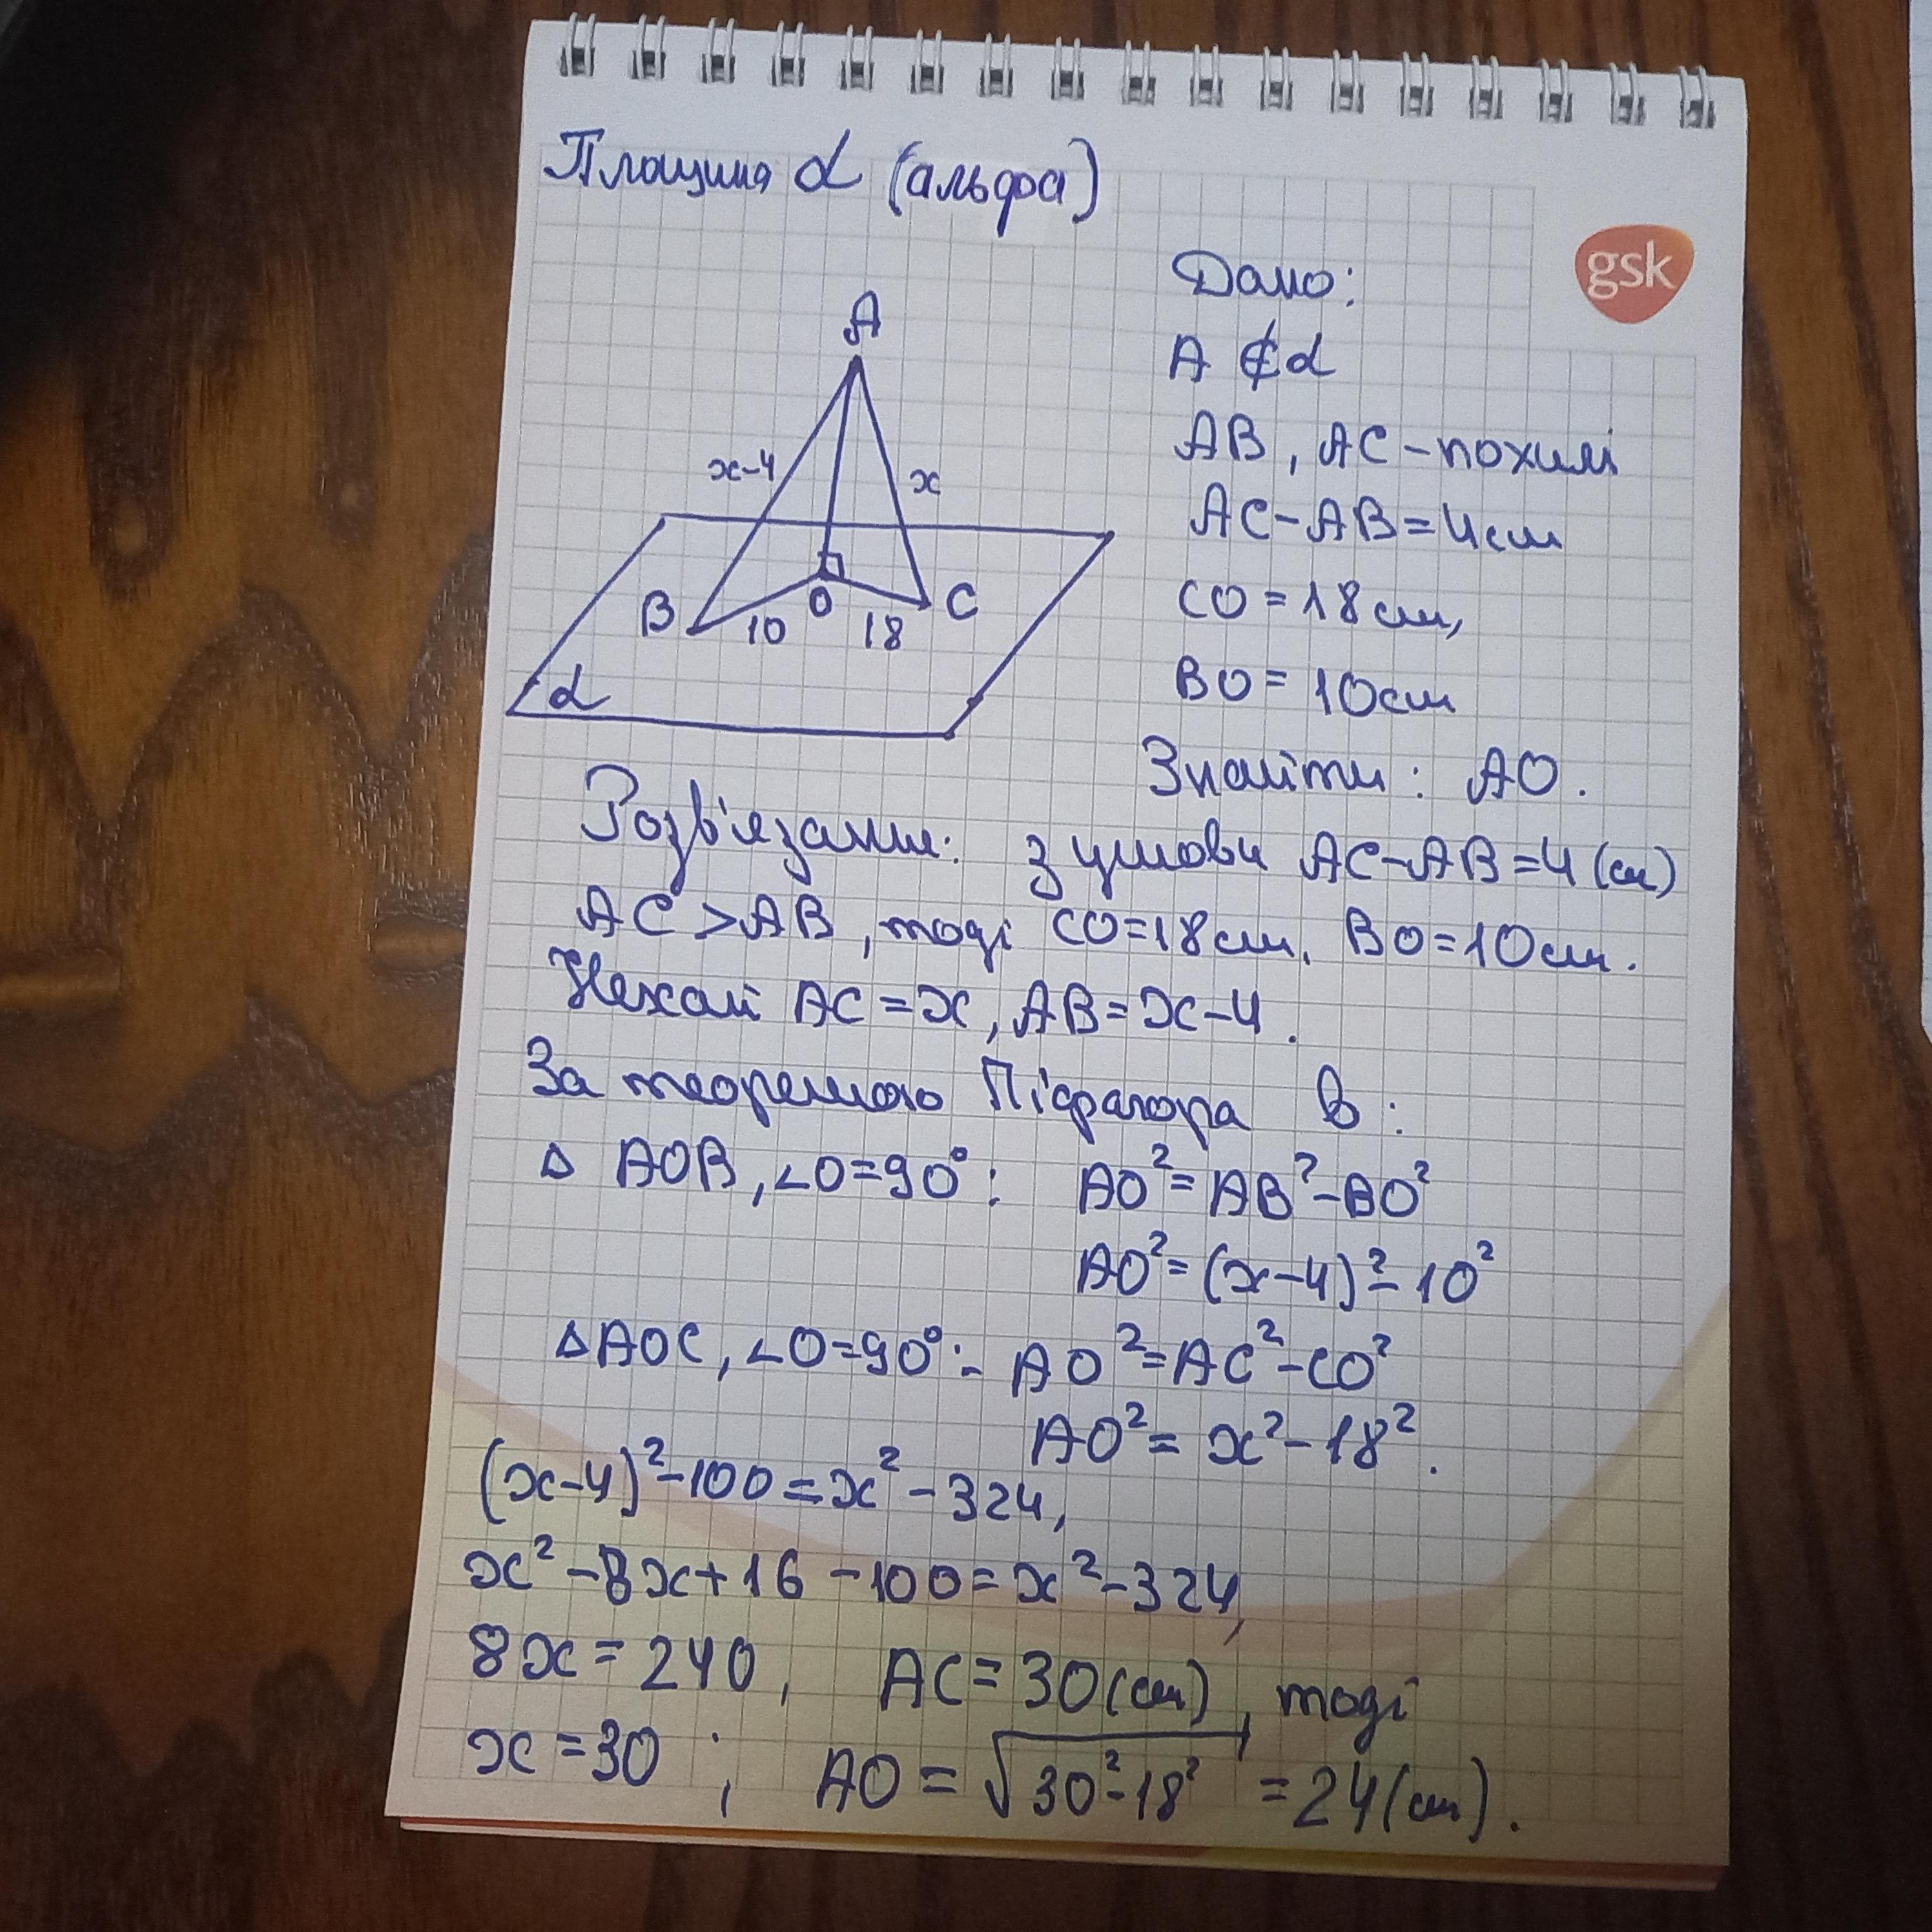 Площина α (альфа)
gsk
Дано:
A ∉ α
AB, AC - похилі
AC - AB = 4см
CO = 18 см,
BO = 10см
Знайти: AO.
A
x-4
x
B
O
C
10
18
α
Розв'язання: з умови AC - AB = 4 (см)
AC > AB, тоді CO = 18 см, BO = 10 см.
Нехай AC = x, AB = x - 4.
За теоремою Піфагора в:
Δ AOB, ∠O = 90°: AO² = AB² - BO²
AO² = (x-4)² - 10²
Δ AOC, ∠O = 90°:- AO² = AC² - CO²
AO² = x² - 18².
(x-4)² - 100 = x² - 324,
x² - 8x + 16 - 100 = x² - 324,
8x = 240, AC = 30 (см), тоді
x = 30; AO = √30² - 18² = 24 (см).